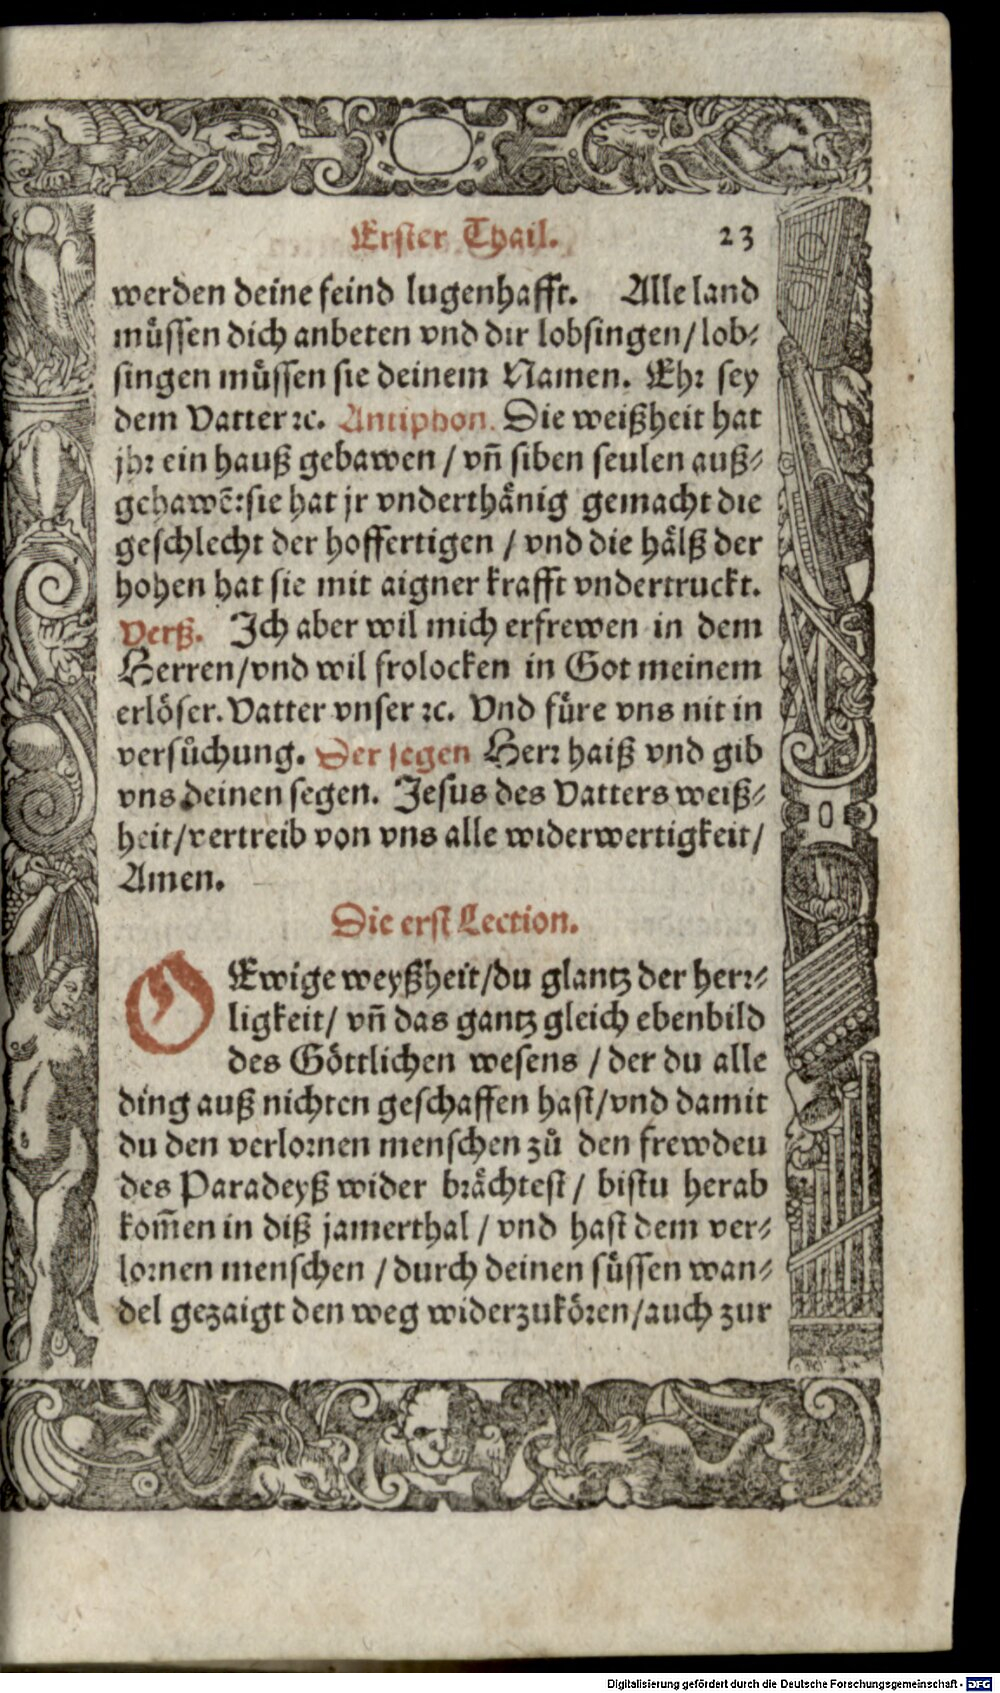 Erster Thail. 23
werden deine feind lugenhafft. Alle land
müssen dich anbeten vnd dir lobsingen/ lob⸗
singen müssen sie deinem Namen. Ehr sey
dem Vatter ꝛc. Antiphon. Die weißheit hat
jhr ein hauß gebawen / vñ siben seulen auß⸗
gehawẽ: sie hat jr vnderthänig gemacht die
geschlecht der hoffertigen / vnd die hälß der
hohen hat sie mit aigner krafft vndertruckt.
Verß. Ich aber wil mich erfrewen in dem
Herren/ vnd wil frolocken in Got meinem
erlöser. Vatter vnser ꝛc. Vnd füre vns nit in
versůchung. Der segen Herr haiß vnd gib
vns deinen segen. Jesus des Vatters weiß⸗
heit/ vertreib von vns alle widerwertigkeit/
Amen.
Die erst Lection.
O Ewige weyßheit/ du glantz der herr⸗
ligkeit/ vñ das gantz gleich ebenbild
des Göttlichen wesens / der du alle
ding auß nichten geschaffen hast/ vnd damit
du den verlornen menschen zů den frewdeu
des Paradeyß wider brächtest/ bistu herab
kom̃en in diß jamerthal / vnd hast dem ver⸗
lornen menschen / durch deinen süssen wan⸗
del gezaigt den weg widerzukören/ auch zur
Digitalisierung gefördert durch die Deutsche Forschungsgemeinschaft - DFG